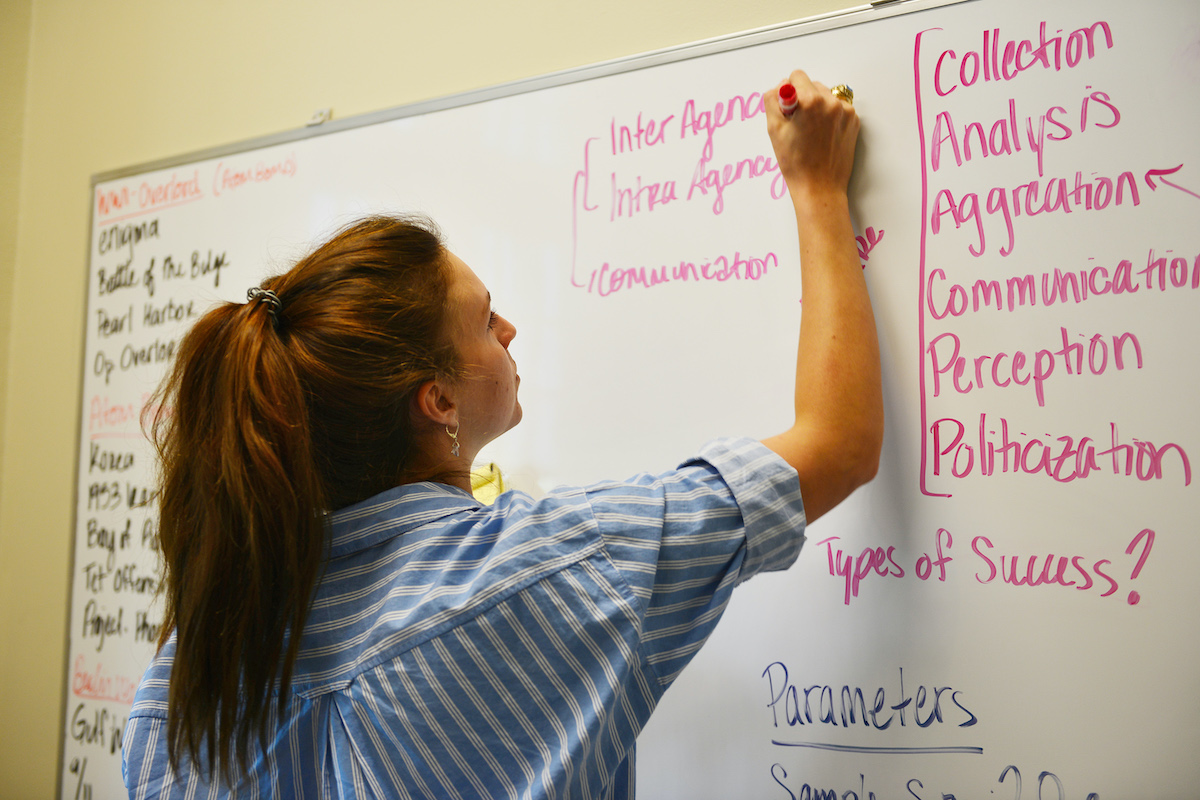 WWII-Overlord (Atom Bomb)
enigma
Battle of The Bulge
Pearl Harbor
Op Overlor
Atom
Korea
1953
Bay of
Tet Offens
Project
Gulf
9/11
Inter Agenc
Intra Agency
Communication
Collection
Analysis
Aggreation
Communication
Perception
Politicization
Types of Success?
Parameters
Sample